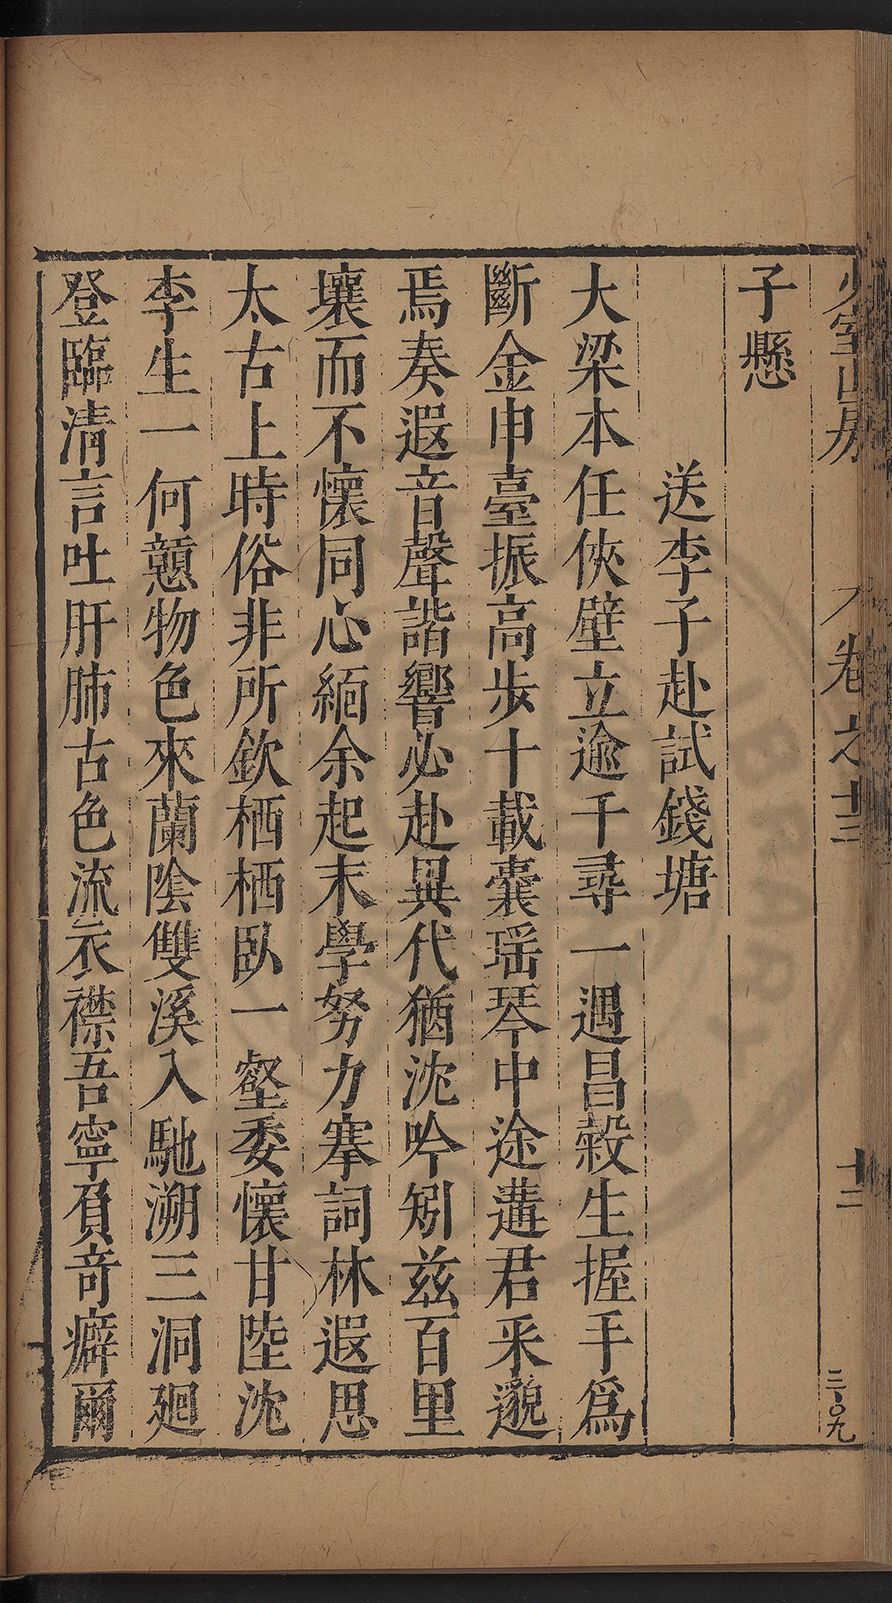 少室山房 卷之十三 十二
三一〇九
子懸
送李子赴試錢塘
大梁本任俠壁立逾千尋一遇昌穀生握手爲
斷金申臺振高步十載囊瑶琴中途遘君采邈
焉奏遐音聲諧響必赴異代猶沈吟矧茲百里
壤而不懷同心緬余起末學努力搴詞林遐思
太古上時俗非所欽栖栖臥一壑委懷甘陸沈
李生一何戇物色來蘭陰雙溪入馳溯三洞廻
登臨清言吐肝肺古色流衣襟吾寧負奇癖爾